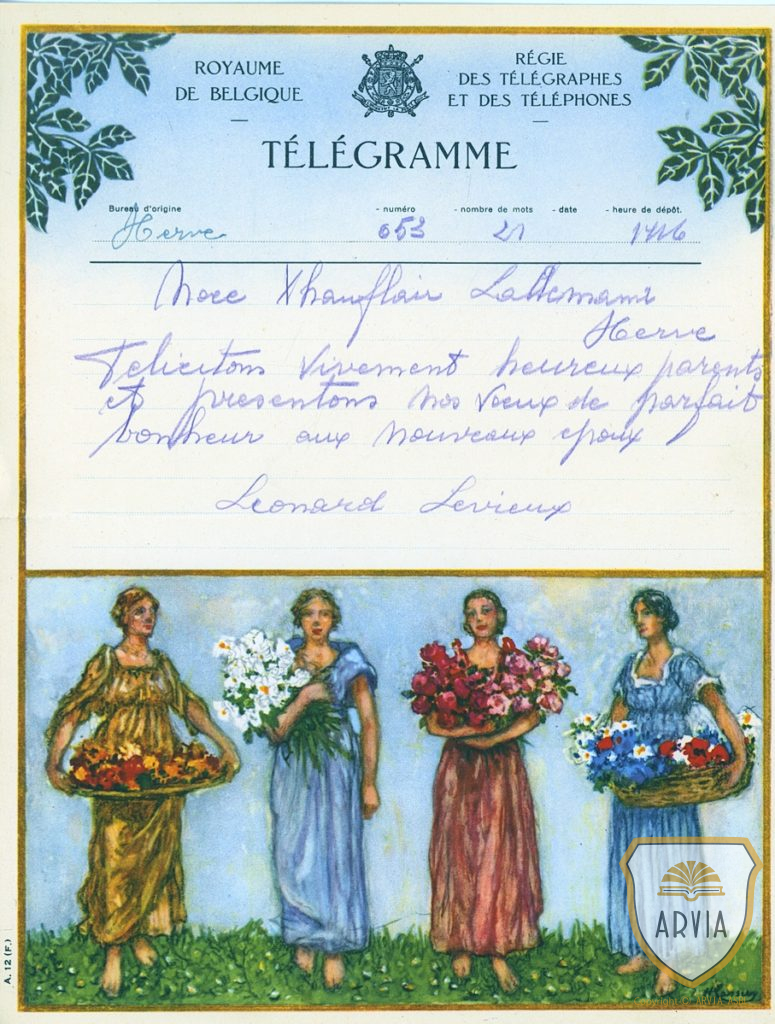 ROYAUME
DE BELGIQUE
RÉGIE
DES TÉLÉGRAPHES
ET DES TÉLÉPHONES
TÉLÉGRAMME
Bureau d'origine - numéro - nombre de mots - date - heure de dépôt.
Herve 053 21 1416
Noce Xhauflair Lallemand
Herve
Felicitons vivement heureux parents
et presentons nos voeux de parfait
bonheur aux nouveaux epoux
Leonard Levieux
A. 12 (F.)
ARVIA